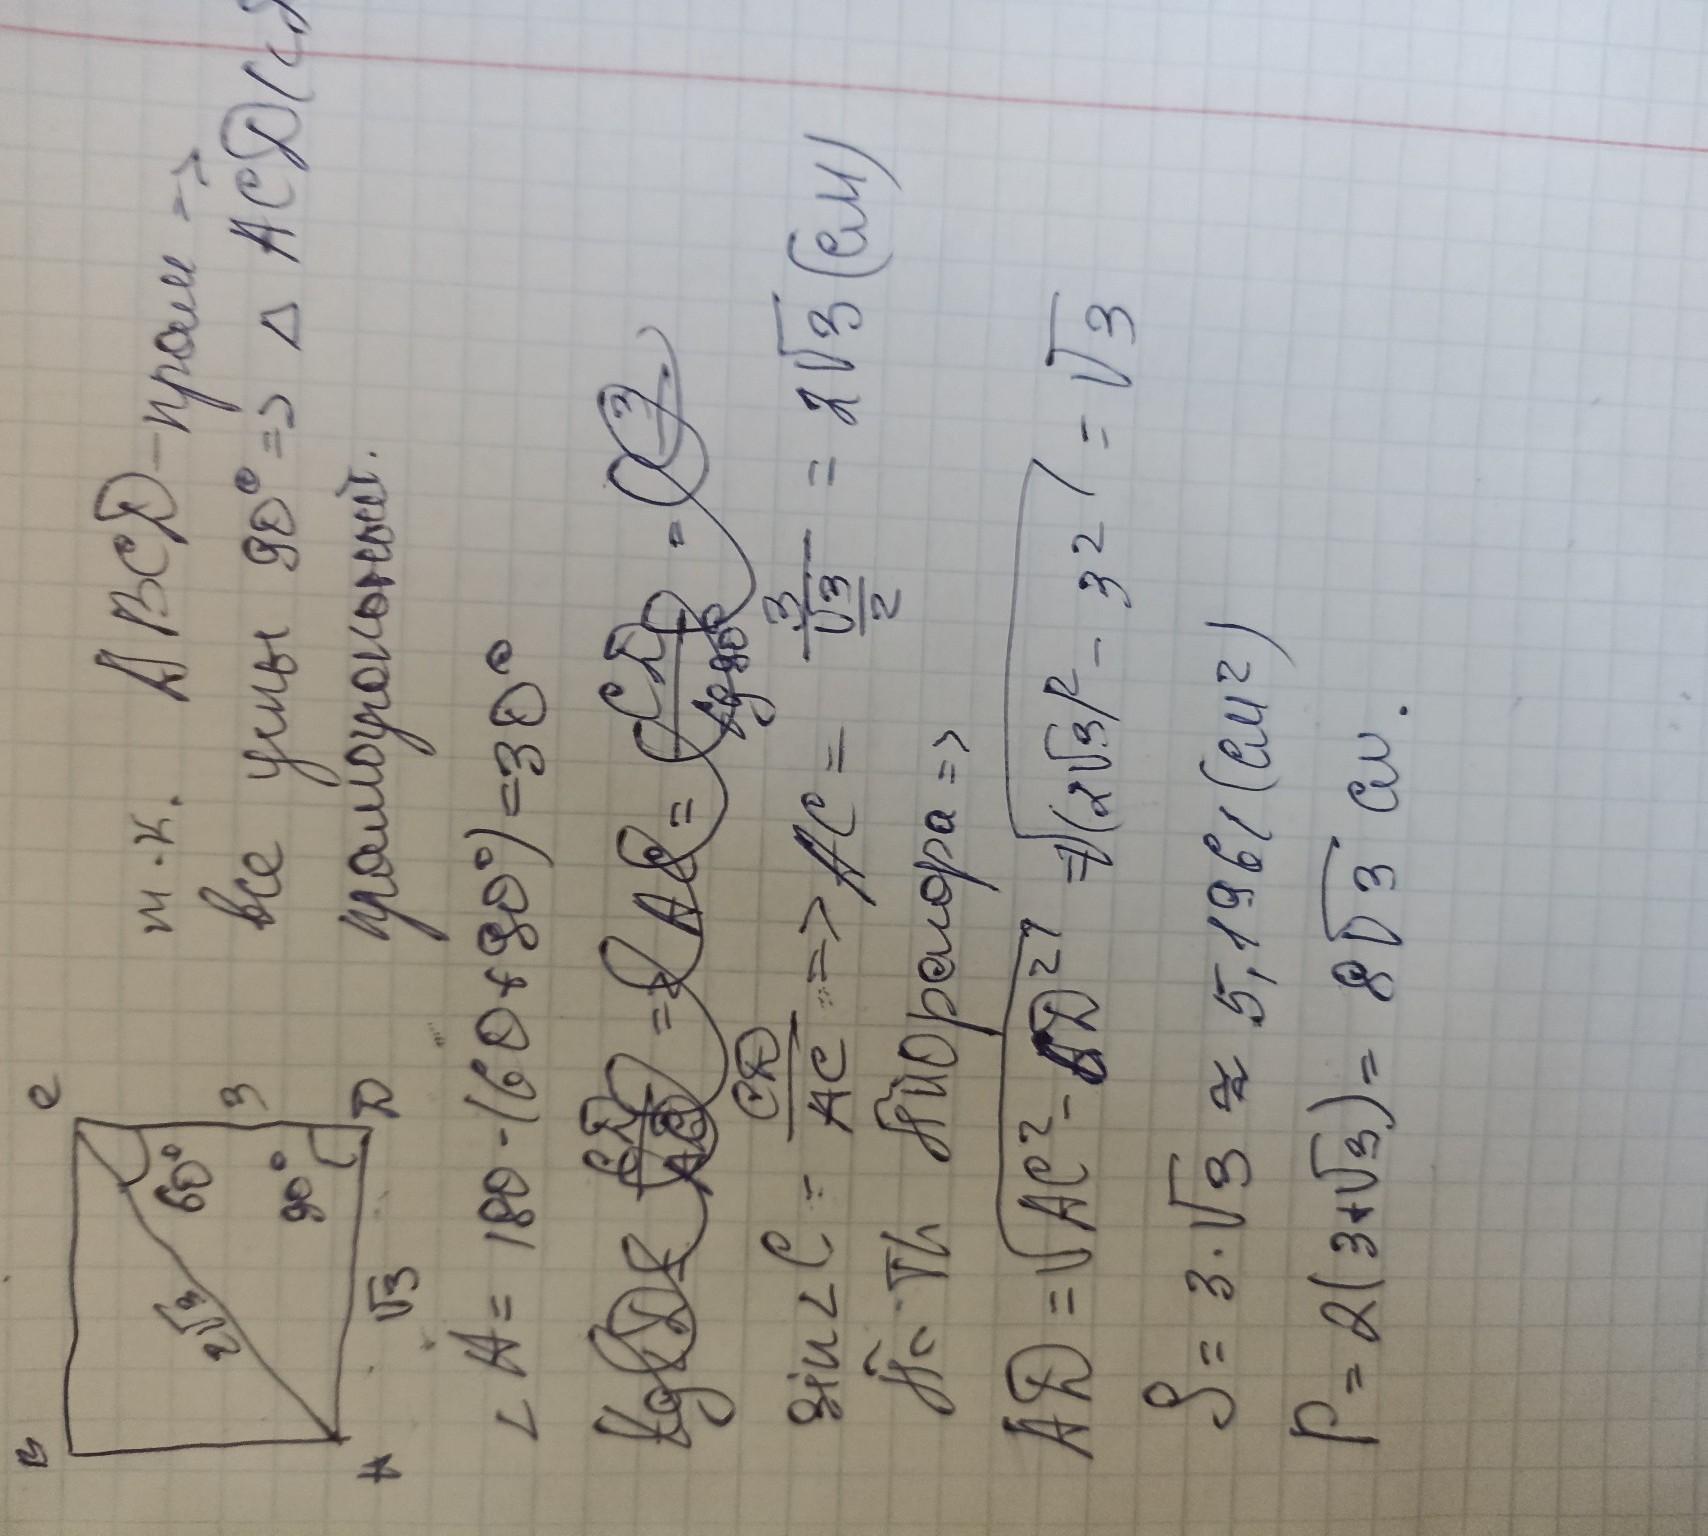 B
C
2√3
60°
3
90°
A
√3
D
т.к. ABCD-прям =>
все углы 90° => △ ACD
прямоугольный.
∠A = 180-(60+90°)=30°
sin∠C = CD/AC => AC = 3/(√3/2) = 2√3(см)
По Th Пифагора =>
AD = √AC²-CD² = √(2√3)²-3² = √3
S = 3·√3 ≈ 5,1961(см²)
P = 2(3+√3) = 8√3 см.